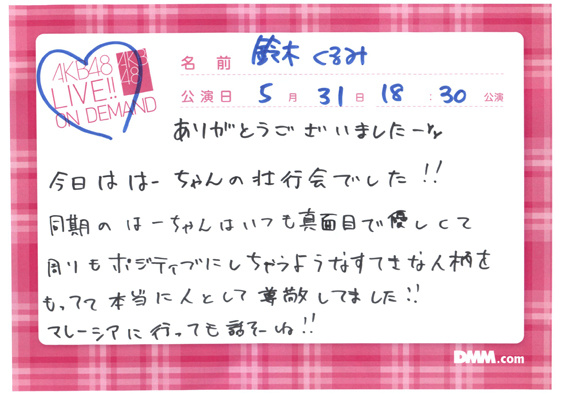 AKB48
LIVE!!
ON DEMAND
AKB
48
名前 鈴木くるみ
公演日 5月31日 18:30公演
ありがとうございましたー
今日ははーちゃんの壮行会でした!!
同期のはーちゃんはいつも真面目で優しくて
周りもポジティブにしちゃうようなすてきな人柄を
もってて本当に人として尊敬してました!!
マレーシアに行っても話そーね!!
DMM.com